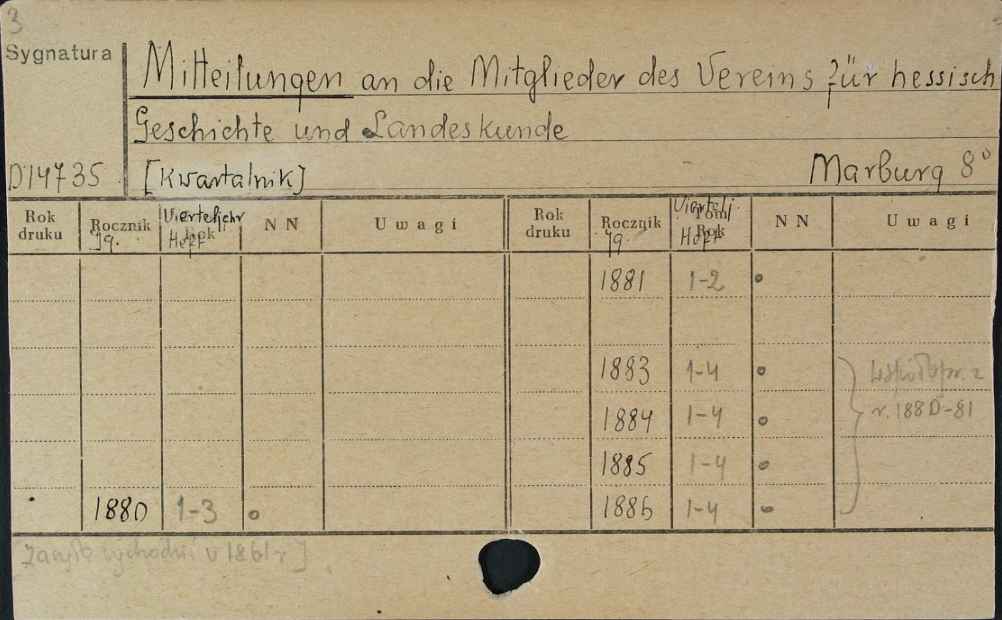 3
Sygnatura
Mitteilungen an die Mitglieder des Vereins für hessisch
Geschichte und Landeskunde
D14735 [Kwartalnik] Marburg 8°
Rok druku Rocznik Jg. Vierteljahr Heft Rok NN Uwagi Rok druku Rocznik Jg. Viertelj. Tom Heft Rok NN Uwagi
1881 1-2
1883 1-4
1884 1-4 r. 1880-81
1885 1-4
1880 1-3 1886 1-4
v 1861 r]